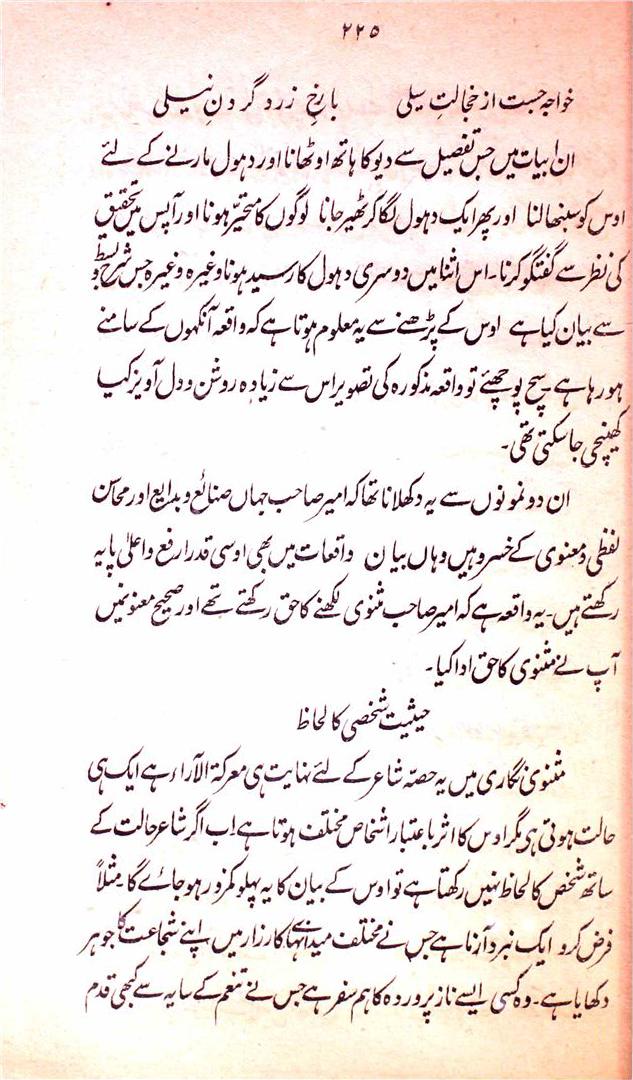 ۲۲۵
خواجہ جست از خجالتِ سیلی با رخِ زرد گردنِ نیلی
ان ابیات میں جس تفصیل سے دیو کا ہاتھ اوٹھانا اور دہول مارنے کے لئے
اوس کو سنبھالنا اور پھر ایک دہول لگا کر ٹھیر جانا لوگوں کا متحیّر ہونا اور آپس میں تحقیق
کی نظر سے گفتگو کرنا۔ اس اثنا میں دوسری دہول کا رسید ہونا وغیرہ وغیرہ جس شرح و بسط
سے بیان کیا ہے اوس کے پڑھنے سے یہ معلوم ہوتا ہے کہ واقعہ آنکھوں کے سامنے
ہو رہا ہے۔ سچ پوچھئے تو واقعہ مذکورہ کی تصویر اس سے زیادہ روشن و دل آویز کیا
کھینچی جا سکتی تھی۔
ان دو نمونوں سے یہ دکھلانا تھا کہ امیر صاحب جہاں صنائع و بدایع اور محاسن
لفظی و معنوی کے خسرو ہیں وہاں بیان واقعات میں بھی اوسی قدر ارفع و اعلیٰ پایہ
رکھتے ہیں۔ یہ واقعہ ہے کہ امیر صاحب مثنوی لکھنے کا حق رکھتے تھے اور صحیح معنوں میں
آپ نے مثنوی کا حق ادا کیا۔
حیثیت شخصی کا لحاظ
مثنوی نگاری میں یہ حصّہ شاعر کے لئے نہایت ہی معرکۃ الآراء ہے ایک ہی
حالت ہوتی ہی مگر اوس کا اثر باعتبار اشخاص مختلف ہوتا ہے اب اگر شاعر حالت کے
ساتھ شخص کا لحاظ نہیں رکھتا ہے تو اوس کے بیان کا یہ پہلو کمزور ہو جائے گا۔ مثلاً
فرض کرو ایک نبرد آزما ہے جس نے مختلف میدانہائے کارزار میں اپنے شجاعت کا جوہر
دکھایا ہے۔ وہ کسی ایسے ناز پروردہ کا ہم سفر ہے جس نے تنعم کے سایہ سے کبھی قدم